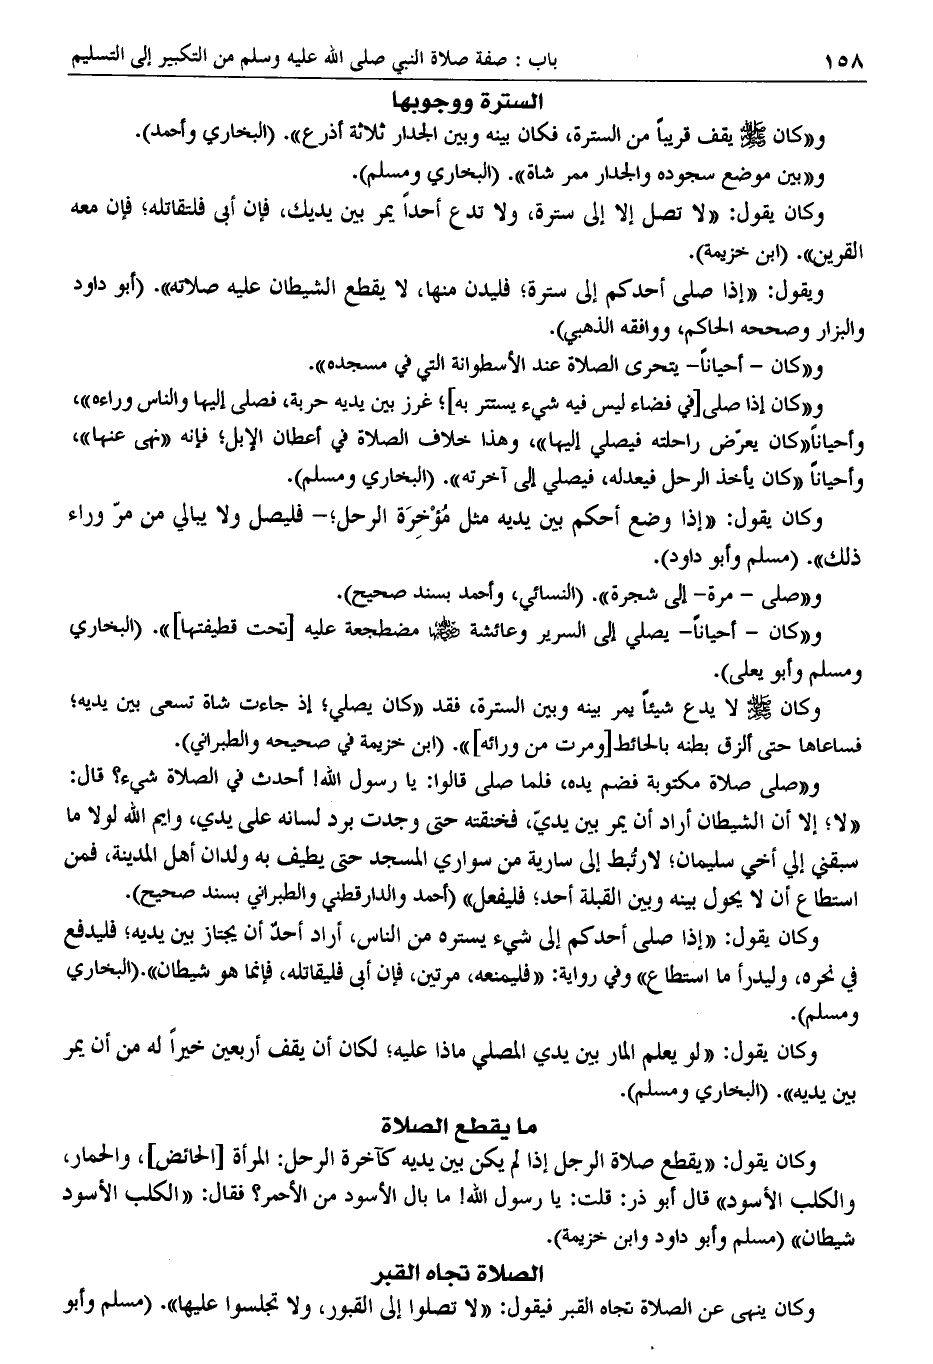 ١٥٨ باب : صفة صلاة النبي صلى الله عليه وسلم من التكبير إلى التسليم
السترة ووجوبها
و«كان ﷺ يقف قريباً من السترة، فكان بينه وبين الجدار ثلاثة أذرع». (البخاري وأحمد).
و«بين موضع سجوده والجدار ممر شاة». (البخاري ومسلم).
وكان يقول: «لا تصل إلا إلى سترة، ولا تدع أحداً يمر بين يديك، فإن أبى فلتقاتله؛ فإن معه
القرين». (ابن خزيمة).
ويقول: «إذا صلى أحدكم إلى سترة؛ فليدن منها، لا يقطع الشيطان عليه صلاته». (أبو داود
والبزار وصححه الحاكم، ووافقه الذهبي).
و«كان – أحياناً– يتحرى الصلاة عند الأسطوانة التي في مسجده».
و«كان إذا صلى[في فضاء ليس فيه شيء يستتر به]؛ غرز بين يديه حربة، فصلى إليها والناس وراءه»،
وأحياناً«كان يعرّض راحلته فيصلي إليها»، وهذا خلاف الصلاة في أعطان الإبل؛ فإنه «نهى عنها»،
وأحياناً «كان يأخذ الرحل فيعدله، فيصلي إلى آخرته». (البخاري ومسلم).
وكان يقول: «إذا وضع أحكم بين يديه مثل مُؤْخِرَة الرحل؛– فليصل ولا يبالي من مرّ وراء
ذلك». (مسلم وأبو داود).
و«صلى – مرة– إلى شجرة». (النسائي، وأحمد بسند صحيح).
و«كان – أحياناً– يصلي إلى السرير وعائشة رضي الله عنها مضطجعة عليه [تحت قطيفتها]». (البخاري
ومسلم وأبو يعلى).
وكان ﷺ لا يدع شيئاً يمر بينه وبين السترة، فقد «كان يصلي؛ إذ جاءت شاة تسعى بين يديه؛
فساعاها حتى ألزق بطنه بالحائط[ومرت من ورائه]». (ابن خزيمة في صحيحه والطبراني).
و«صلى صلاة مكتوبة فضم يده، فلما صلى قالوا: يا رسول الله! أحدث في الصلاة شيء؟ قال:
«لا؛ إلا أن الشيطان أراد أن يمر بين يديّ، فخنقته حتى وجدت برد لسانه على يدي، وايم الله لولا ما
سبقني إلي أخي سليمان؛ لارتُبط إلى سارية من سواري المسجد حتى يطيف به ولدان أهل المدينة، فمن
استطاع أن لا يحول بينه وبين القبلة أحد؛ فليفعل» (أحمد والدارقطني والطبراني بسند صحيح).
وكان يقول: «إذا صلى أحدكم إلى شيء يستره من الناس، أراد أحدٌ أن يجتاز بين يديه؛ فليدفع
في نحره، وليدرأ ما استطاع» وفي رواية: «فليمنعه، مرتين، فإن أبى فليقاتله، فإنما هو شيطان».(البخاري
ومسلم).
وكان يقول: «لو يعلم المار بين يدي المصلي ماذا عليه؛ لكان أن يقف أربعين خيراً له من أن يمر
بين يديه». (البخاري ومسلم).
ما يقطع الصلاة
وكان يقول: «يقطع صلاة الرجل إذا لم يكن بين يديه كآخرة الرحل: المرأة [الحائض]، والحمار،
والكلب الأسود» قال أبو ذر: قلت: يا رسول الله! ما بال الأسود من الأحمر؟ فقال: «الكلب الأسود
شيطان» (مسلم وأبو داود وابن خزيمة).
الصلاة تجاه القبر
وكان ينهى عن الصلاة تجاه القبر فيقول: «لا تصلوا إلى القبور، ولا تجلسوا عليها». (مسلم وأبو